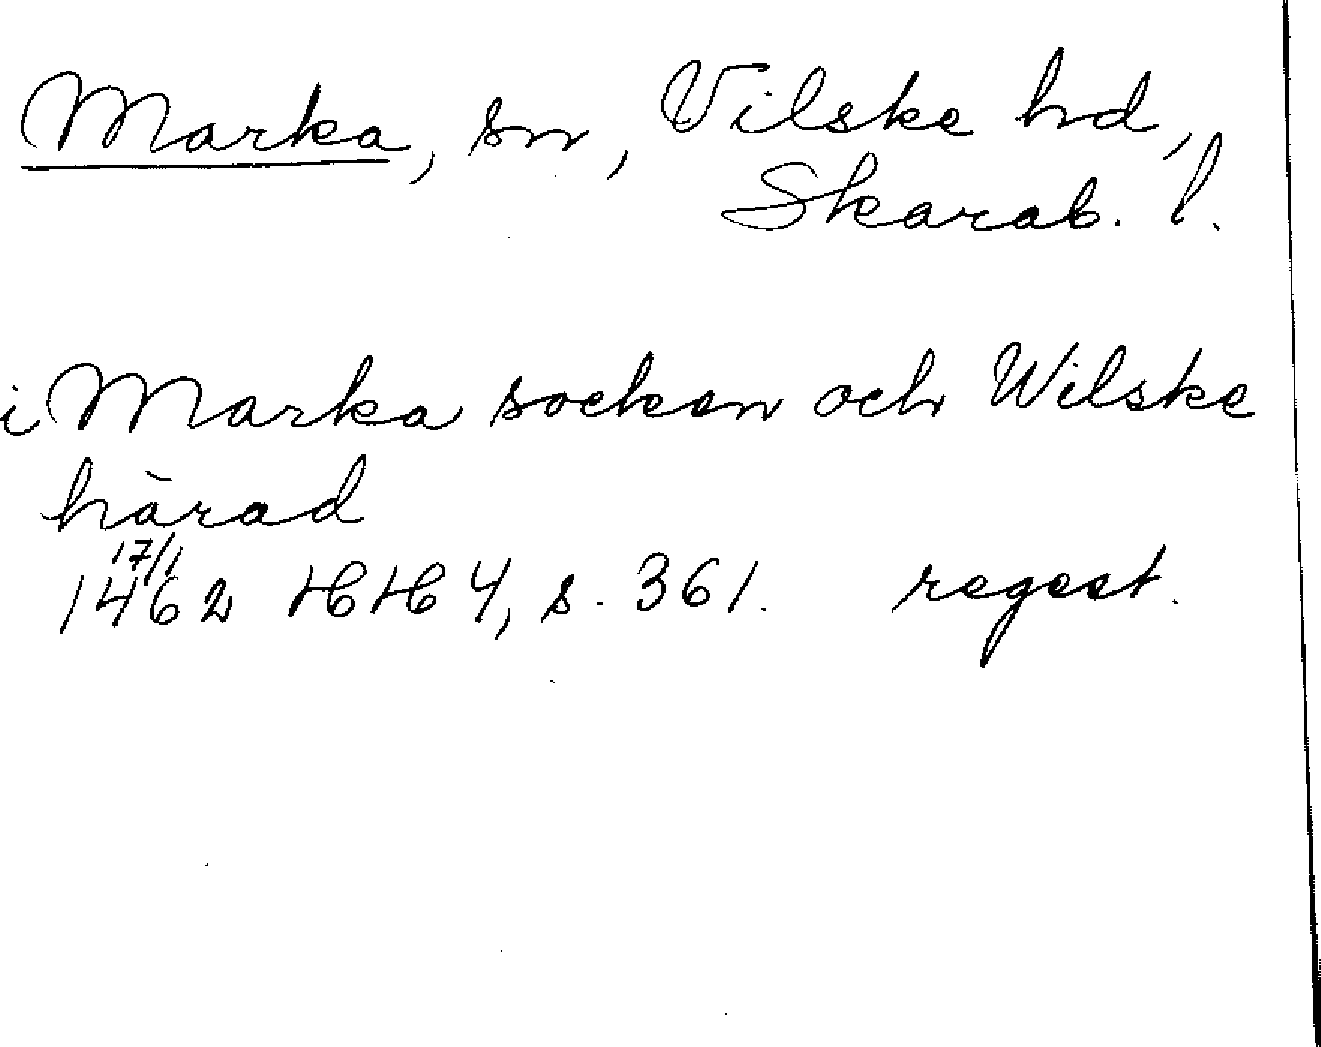 Marka, sn, Vilske hd,
Skarab. l.
i Marka socken och Wilske
härad
17/1
1462 HH 4, s. 361. regest.